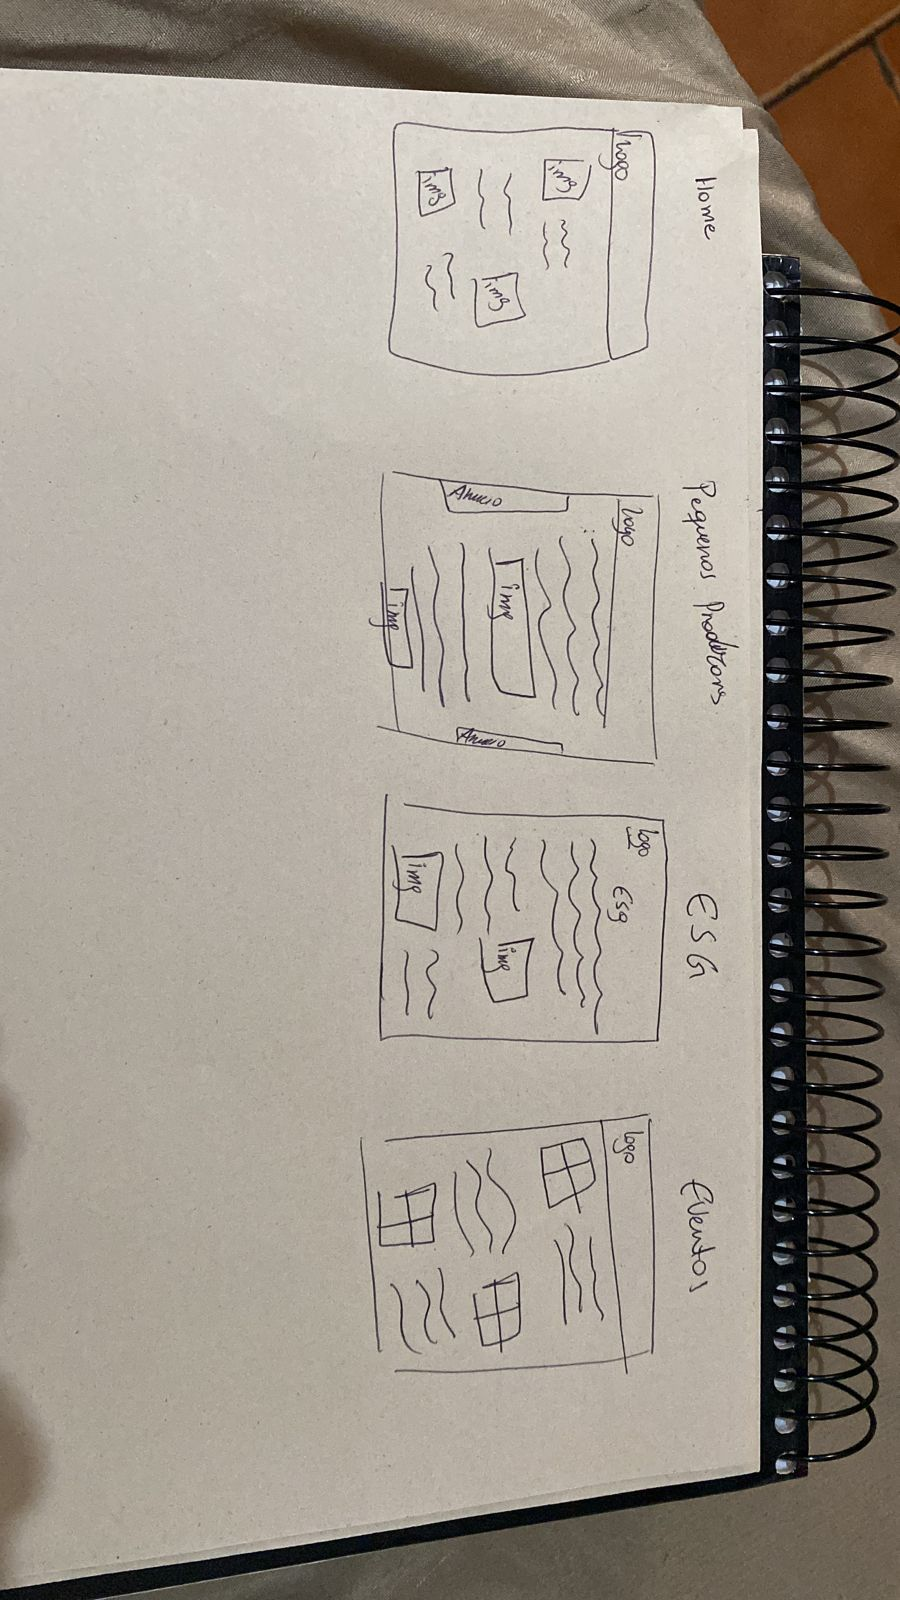 Home
Logo
img
img
img
Pequenos Produtores
Logo
Anuncio
img
img
Anuncio
ESG
logo
Esg
img
img
Eventos
logo